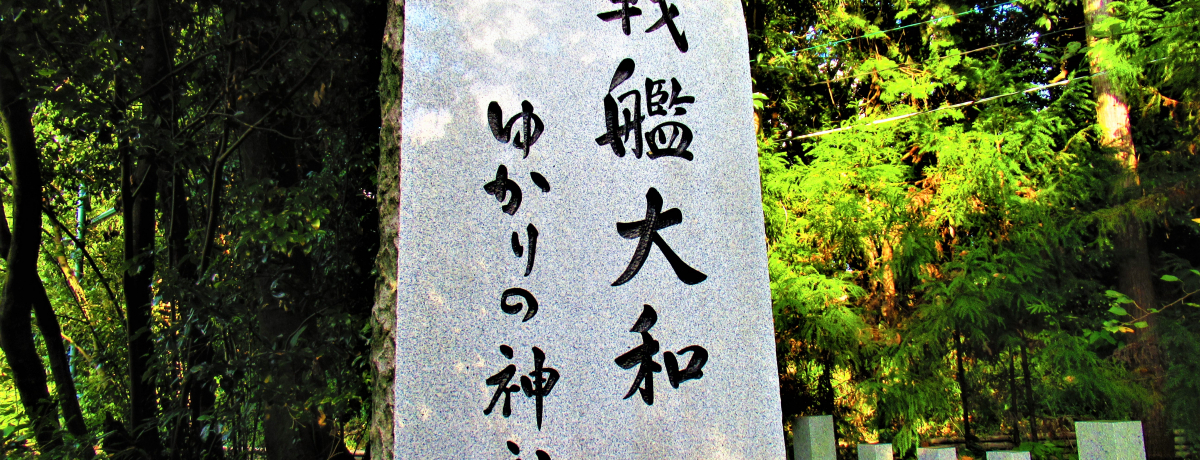 戦艦大和
ゆかりの神